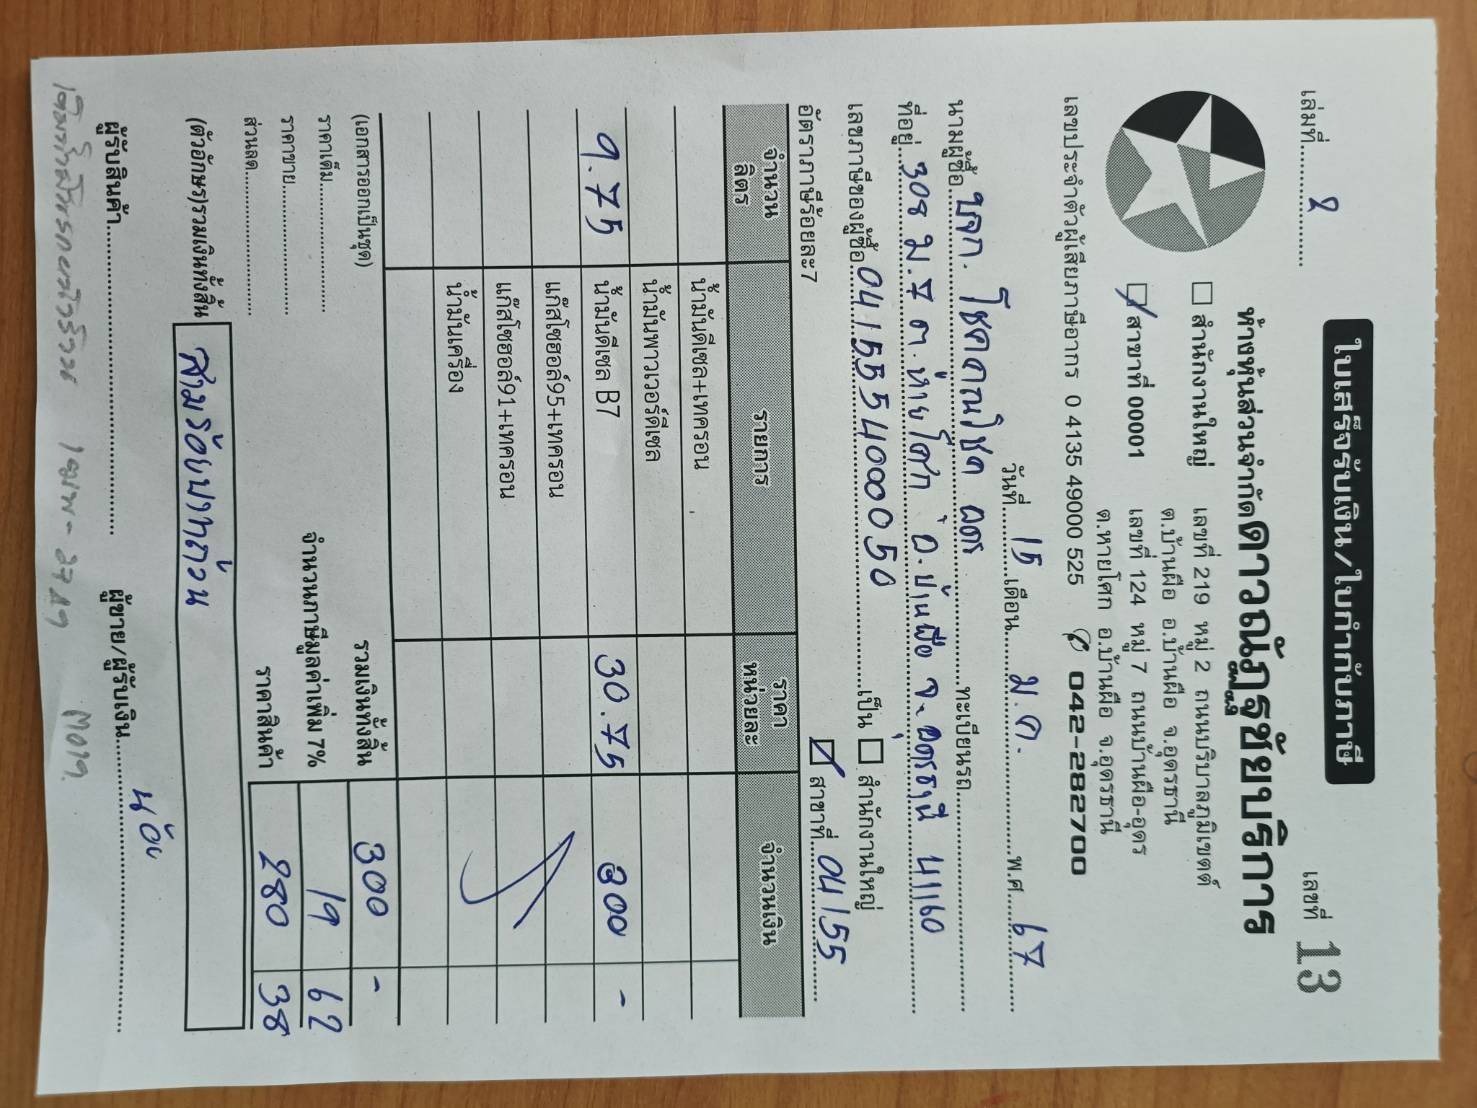 ใบเสร็จรับเงิน/ใบกำกับภาษี
เล่มที่ 8 เลขที่ 13
ห้างหุ้นส่วนจำกัดดาวณัฏฐชัยบริการ
สำนักงานใหญ่ เลขที่ 219 หมู่ 2 ถนนบริบาลภูมิเขตต์
ต.บ้านผือ อ.บ้านผือ จ.อุดรธานี
สาขาที่ 00001 เลขที่ 124 หมู่ 7 ถนนบ้านผือ-อุดร
ต.หายโศก อ.บ้านผือ จ.อุดรธานี
เลขประจำตัวผู้เสียภาษีอากร 0 4135 49000 525 042-282700
วันที่ 15 เดือน ม.ค. พ.ศ. 67
นามผู้ซื้อ บจก. โชคคณโชค อุดร ทะเบียนรถ
ที่อยู่ 308 ม.7 ต.หายโศก อ.บ้านผือ จ.อุดรธานี 41160
เลขภาษีของผู้ซื้อ 0415554000050 เป็น สำนักงานใหญ่
อัตราภาษีร้อยละ7 สาขาที่ 04155
จำนวนลิตร รายการ ราคาหน่วยละ จำนวนเงิน
น้ำมันดีเซล+เทครอน
น้ำมันพาวเวอร์ดีเซล
9.75 น้ำมันดีเซล B7 30.75 300 -
แก๊สโซฮอล์95+เทครอน
แก๊สโซฮอล์91+เทครอน
น้ำมันเครื่อง
(เอกสารออกเป็นชุด) รวมเงินทั้งสิ้น 300 -
ราคาเต็ม จำนวนภาษีมูลค่าเพิ่ม 7% 19 62
ราคาขาย ราคาสินค้า 280 38
ส่วนลด
(ตัวอักษร)รวมเงินทั้งสิ้น สามร้อยบาทถ้วน
ผู้รับสินค้า ผู้ขาย/ผู้รับเงิน น้อย